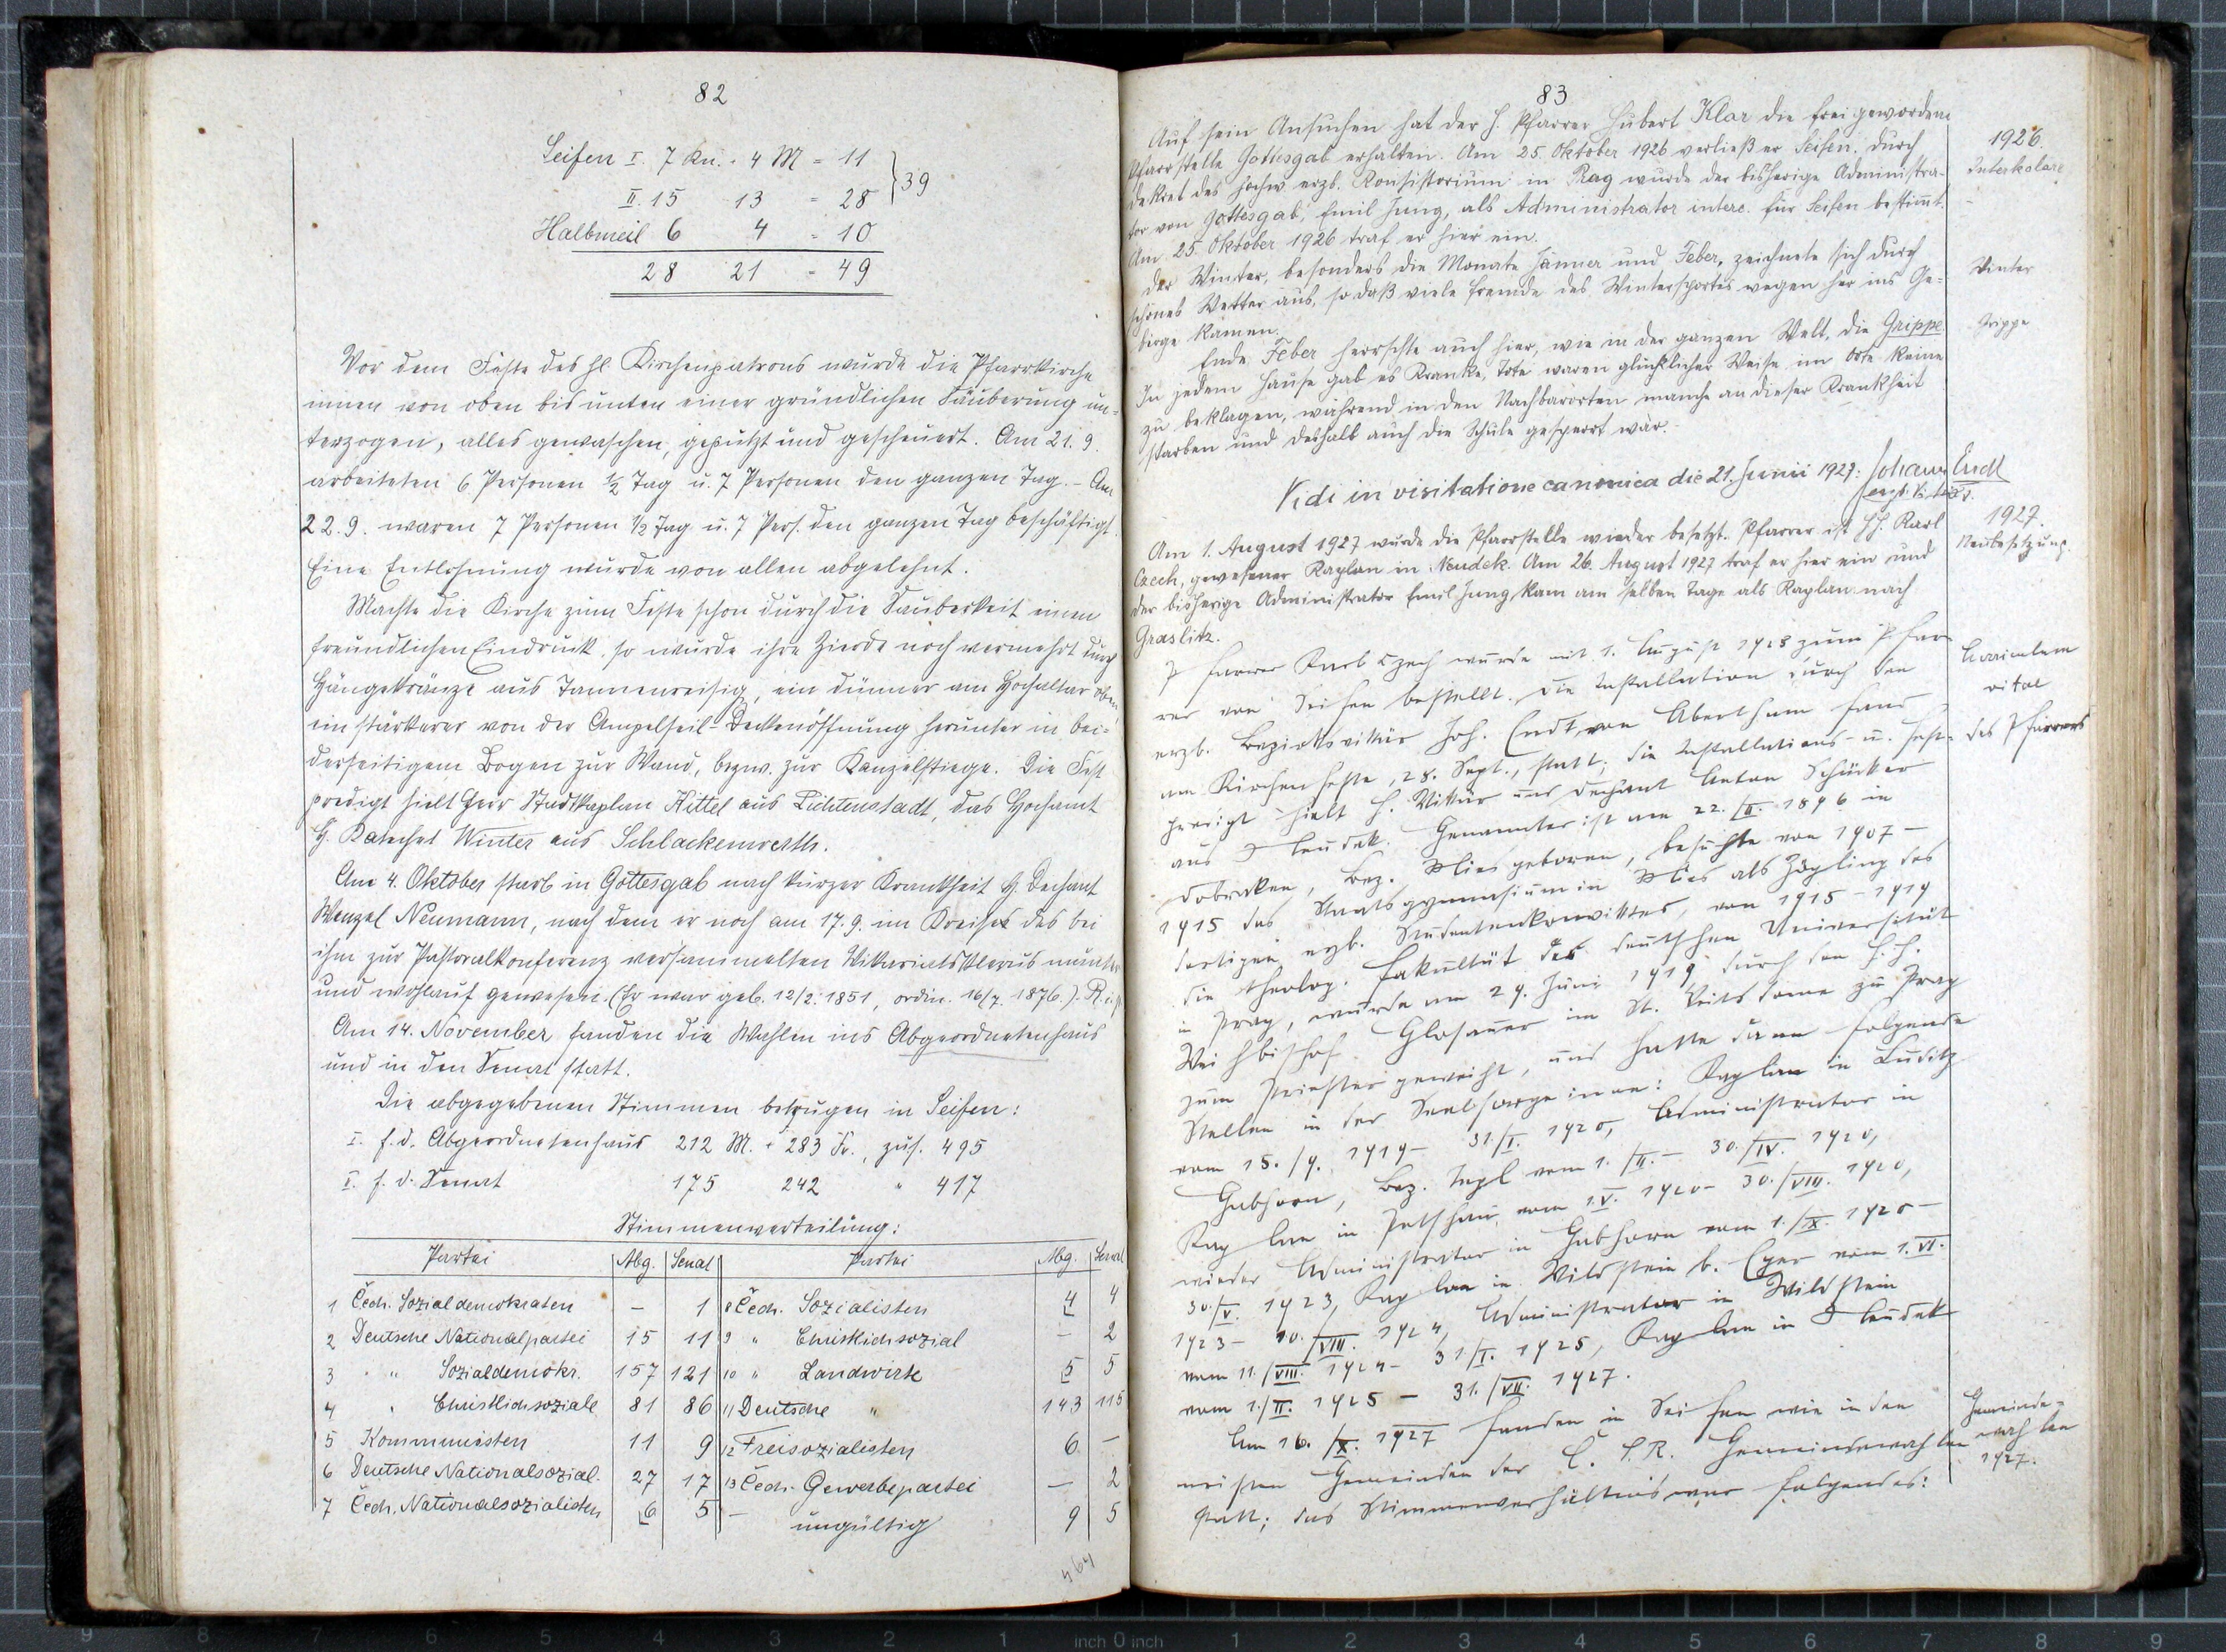 82
Seifen I. 7 Kn. + 4 M = 11
II. 15 13 = 28 } 39
Halbmeil 6 4 = 10
28 21 = 49
Vor dem Feste des hl. Kirchenpatrons wurde die Pfarrkirche
innen von oben bis unten einer gründlichen Säuberung un-
terzogen, alles gewaschen, geputzt und gescheuert. Am 21.9.
arbeiteten 6 Personen ½ Tag u. 7 Personen den ganzen Tag. – Am
22.9. waren 7 Personen ½ Tag u. 7 Pers. den ganzen Tag beschäftigt.
Eine Entlohnung wurde von allen abgelehnt.
Machte die Kirche zum Feste schon durch die Sauberkeit einen
freundlichen Eindruck, so wurde ihre Zierde noch vermehrt durch
Hängekränze aus Tannenreisig, ein dünner am Hochaltar oben,
ein stärkerer von der Ampelseil-Deckenöffnung herunter in bei-
derseitigem Bogen zur Wand, bezw. zur Kanzelstiege. Die Fest
predigt hielt Herr Stadtkaplan Kittel aus Lichtenstadt, das Hochamt
H. Katechet Winter aus Schlackenwerth.
Am 4. Oktober starb in Gottesgab nach kurzer Krankheit H. Dechant
Wenzel Neumann, nach dem er noch am 17.9. im Kreise des bei
ihm zur Pastoralkonferenz versammelten Vikariatsklerus munter
und wohlauf gewesen. (Er war geb. 12/2. 1851, ordin. 16/7. 1876.) R.i.p.
Am 14. November fanden die Wahlen ins Abgeordnetenhaus
und in den Senat statt.
Die abgegebenen Stimmen betrugen in Seifen:
I. f. d. Abgeordnetenhaus 212 M. + 283 Fr., zus. 495
II. f. d. Senat 175 242 " 417
Stimmenverteilung:
Partei Abg. Senat Partei Abg. Senat
1 Čech. Sozialdemokraten – 1 8 Čech. Sozialisten 4 4
2 Deutsche Nationalpartei 15 11 9 " Christlichsozial – 2
3 " Sozialdemokr. 157 121 10 " Landwirte 5 5
4 " Christlichsoziale 81 86 11 Deutsche " 143 115
5 Kommunisten 11 9 12 Freisozialisten 6 –
6 Deutsche Nationalsozial. 27 17 13 Čech. Gewerbepartei – 2
7 Čech. Nationalsozialisten 6 5 – ungültig 9 5
464
83
Auf sein Ansuchen hat der H. Pfarrer Hubert Klar die frei gewordene
Pfarrstelle Gottesgab erhalten. Am 25. Oktober 1926 verließ er Seifen. Durch
Dekret des hochw. erzb. Konsistorium in Prag wurde der bisherige Administra-
tor von Gottesgab, Emil Jung, als Administrator interc. für Seifen bestimmt.
Am 25. Oktober 1926 traf er hier ein.
1926.
Interkalare
Der Winter, besonders die Monate Jänner und Feber, zeichnete sich durch
schönes Wetter aus, so daß viele Fremde des Wintersportes wegen her ins Ge-
birge kamen.
Winter
Ende Feber herrschte auch hier, wie in der ganzen Welt, die Grippe.
In jedem Hause gab es Kranke, Tote waren glücklicher Weise im Orte keine
zu beklagen, während in den Nachbarorten manche an dieser Krankheit
starben und deshalb auch die Schule gesperrt war.
Grippe
Vidi in visitatione canonica die 21. Junii 1927: Johann Endt
erzb. Vikar.
Am 1. August 1927 wurde die Pfarrstelle wieder besetzt. Pfarrer ist HH. Karl
Czech, gewesener Kaplan in Neudek. Am 26. August 1927 traf er hier ein und
der bisherige Administrator Emil Jung kam am selben Tage als Kaplan nach
Graslitz.
1927.
Neubesetzung.
Pfarrer Karl Czech wurde mit 1. August 1928 zum Pfar-
rer von Seifen bestellt. Die Installation durch den
erzb. Bezirksvikär Joh. Endt, von Abertham fand
am Kirchenfeste, 28. Sept., statt; die Installations- u. Fest-
predigt hielt H. Vikär und Dechant Anton Schücker
aus Neudek. Genannter ist am 22./II. 1896 in
Dobraken, Bez. Mies geboren, besuchte von 1907 –
1915 das Staatsgymnasium in Mies als Zögling des
dortigen erzb. Studentenkonviktes, von 1915 – 1919
die theolog. Fakultät der deutschen Universität
in Prag, wurde am 29. Juni 1919 durch den H. H.
Weihbischof Glosauer im St. Veitsdome zu Prag
zum Priester geweiht, und hatte dann folgende
Stellen in der Seelsorge inne: Kaplan in Luditz
vom 15./9. 1919 – 31./I. 1920, Administrator in
Gabhorn, Bez. Tepl vom 1./II. – 30./IV. 1920,
Kaplan in Petschau vom 1.V. 1920 – 30./VIII. 1920,
wieder Administrator in Gabhorn vom 1./IX. 1920 –
30./V. 1923, Kaplan in Wildstein b. Eger vom 1.VI.
1923 – 10./VIII. 1924, Administrator in Wildstein
vom 11./VIII. 1924 – 31./I. 1925, Kaplan in Neudek
vom 1./II. 1925 – 31./VII. 1927.
Curriculum
vitae
des Pfarrers
Am 16./X. 1927 fanden in Seifen wie in den
meisten Gemeinden der Č. S. R. Gemeindewahlen
statt; das Stimmenverhältnis war folgendes:
Gemeinde-
wahlen
1927.
9 8 7 6 5 4 3 2 1 inch 0 inch 1 2 3 4 5 6 7 8 9